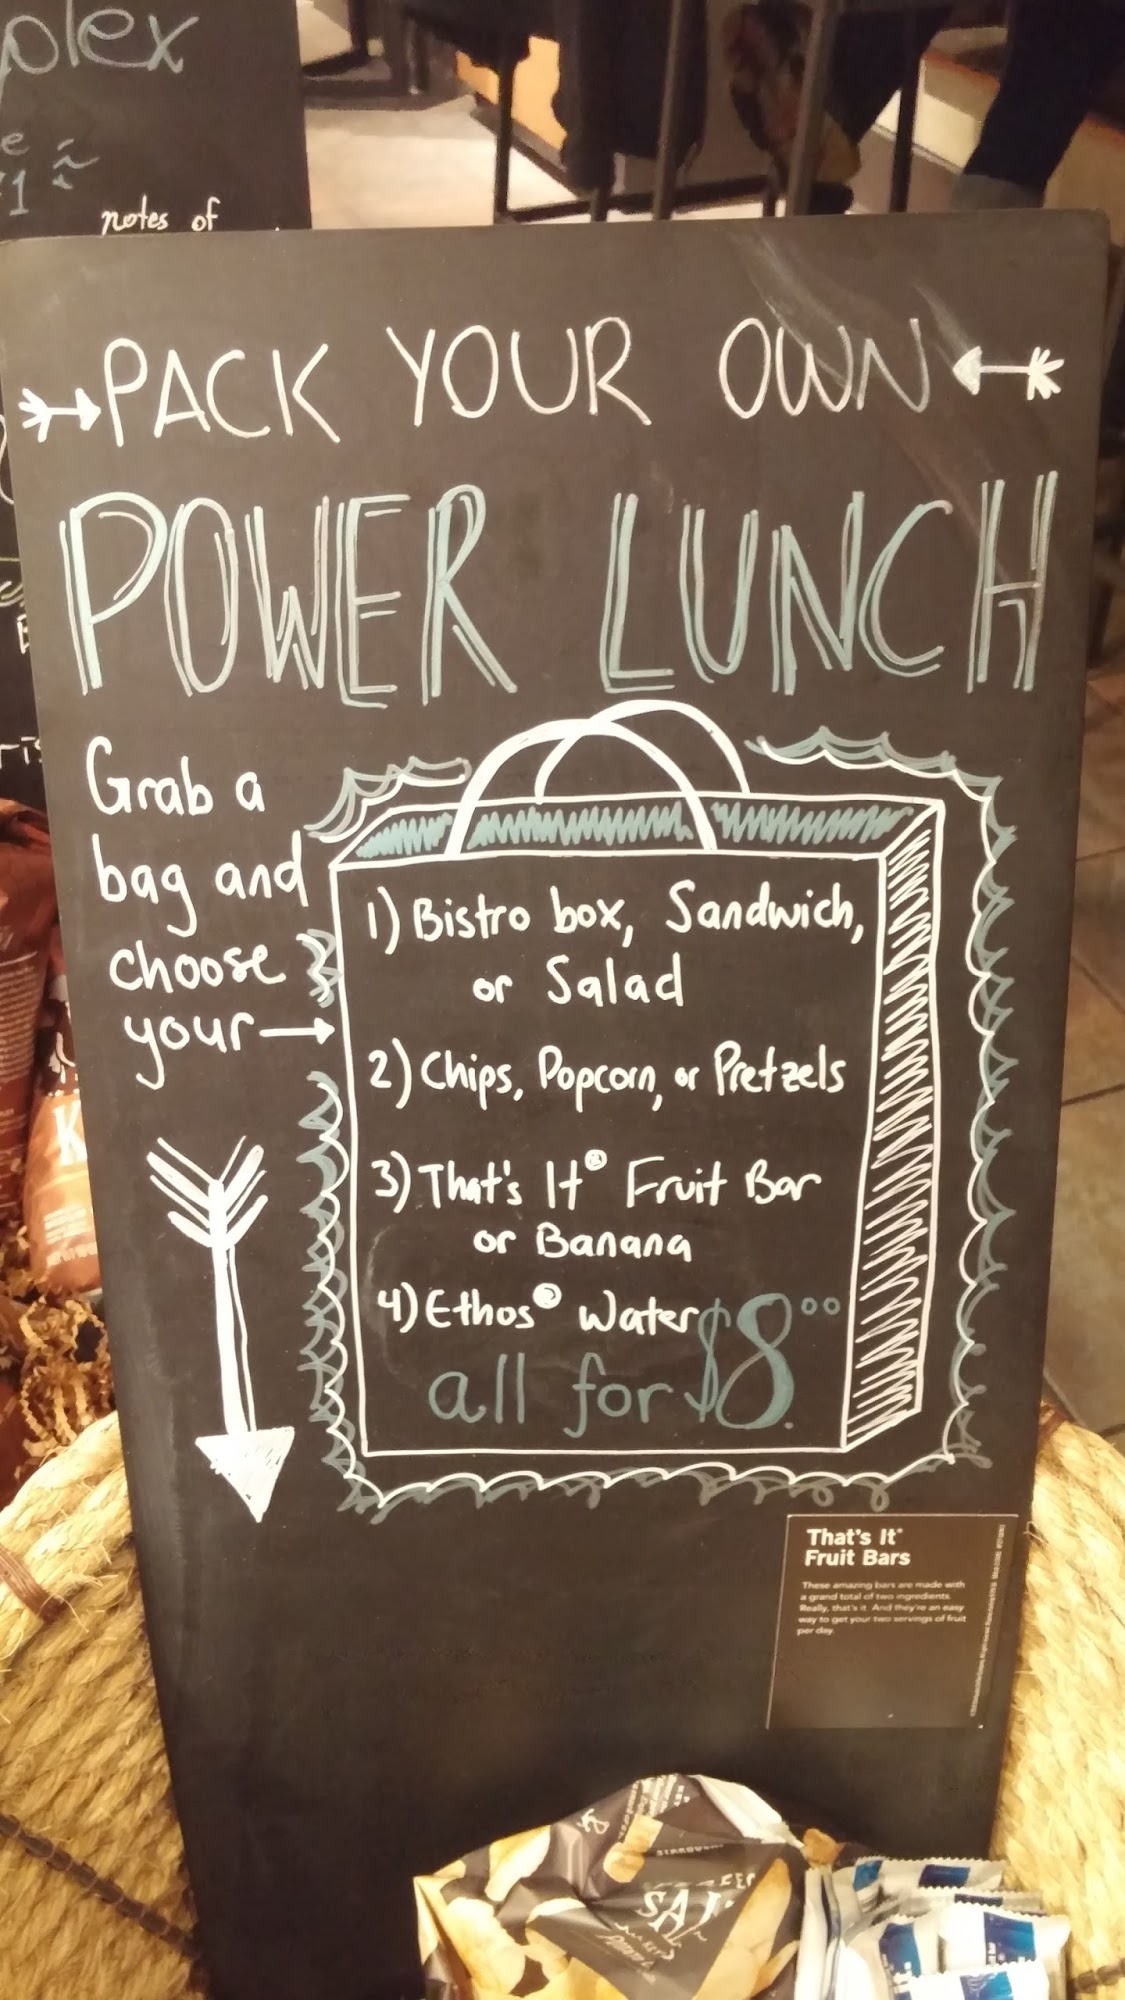 plex
e
1
notes of
PACK YOUR OWN
POWER LUNCH
Grab a
bag and
choose
your
1) Bistro box, Sandwich,
or Salad
2) Chips, Popcorn, or Pretzels
3) That's It® Fruit Bar
or Banana
4) Ethos® Water
all for $8.00
That's It®
Fruit Bars
These amazing bars are made with
a grand total of two ingredients.
Really, that's it. And they're an easy
way to get your two servings of fruit
per day.